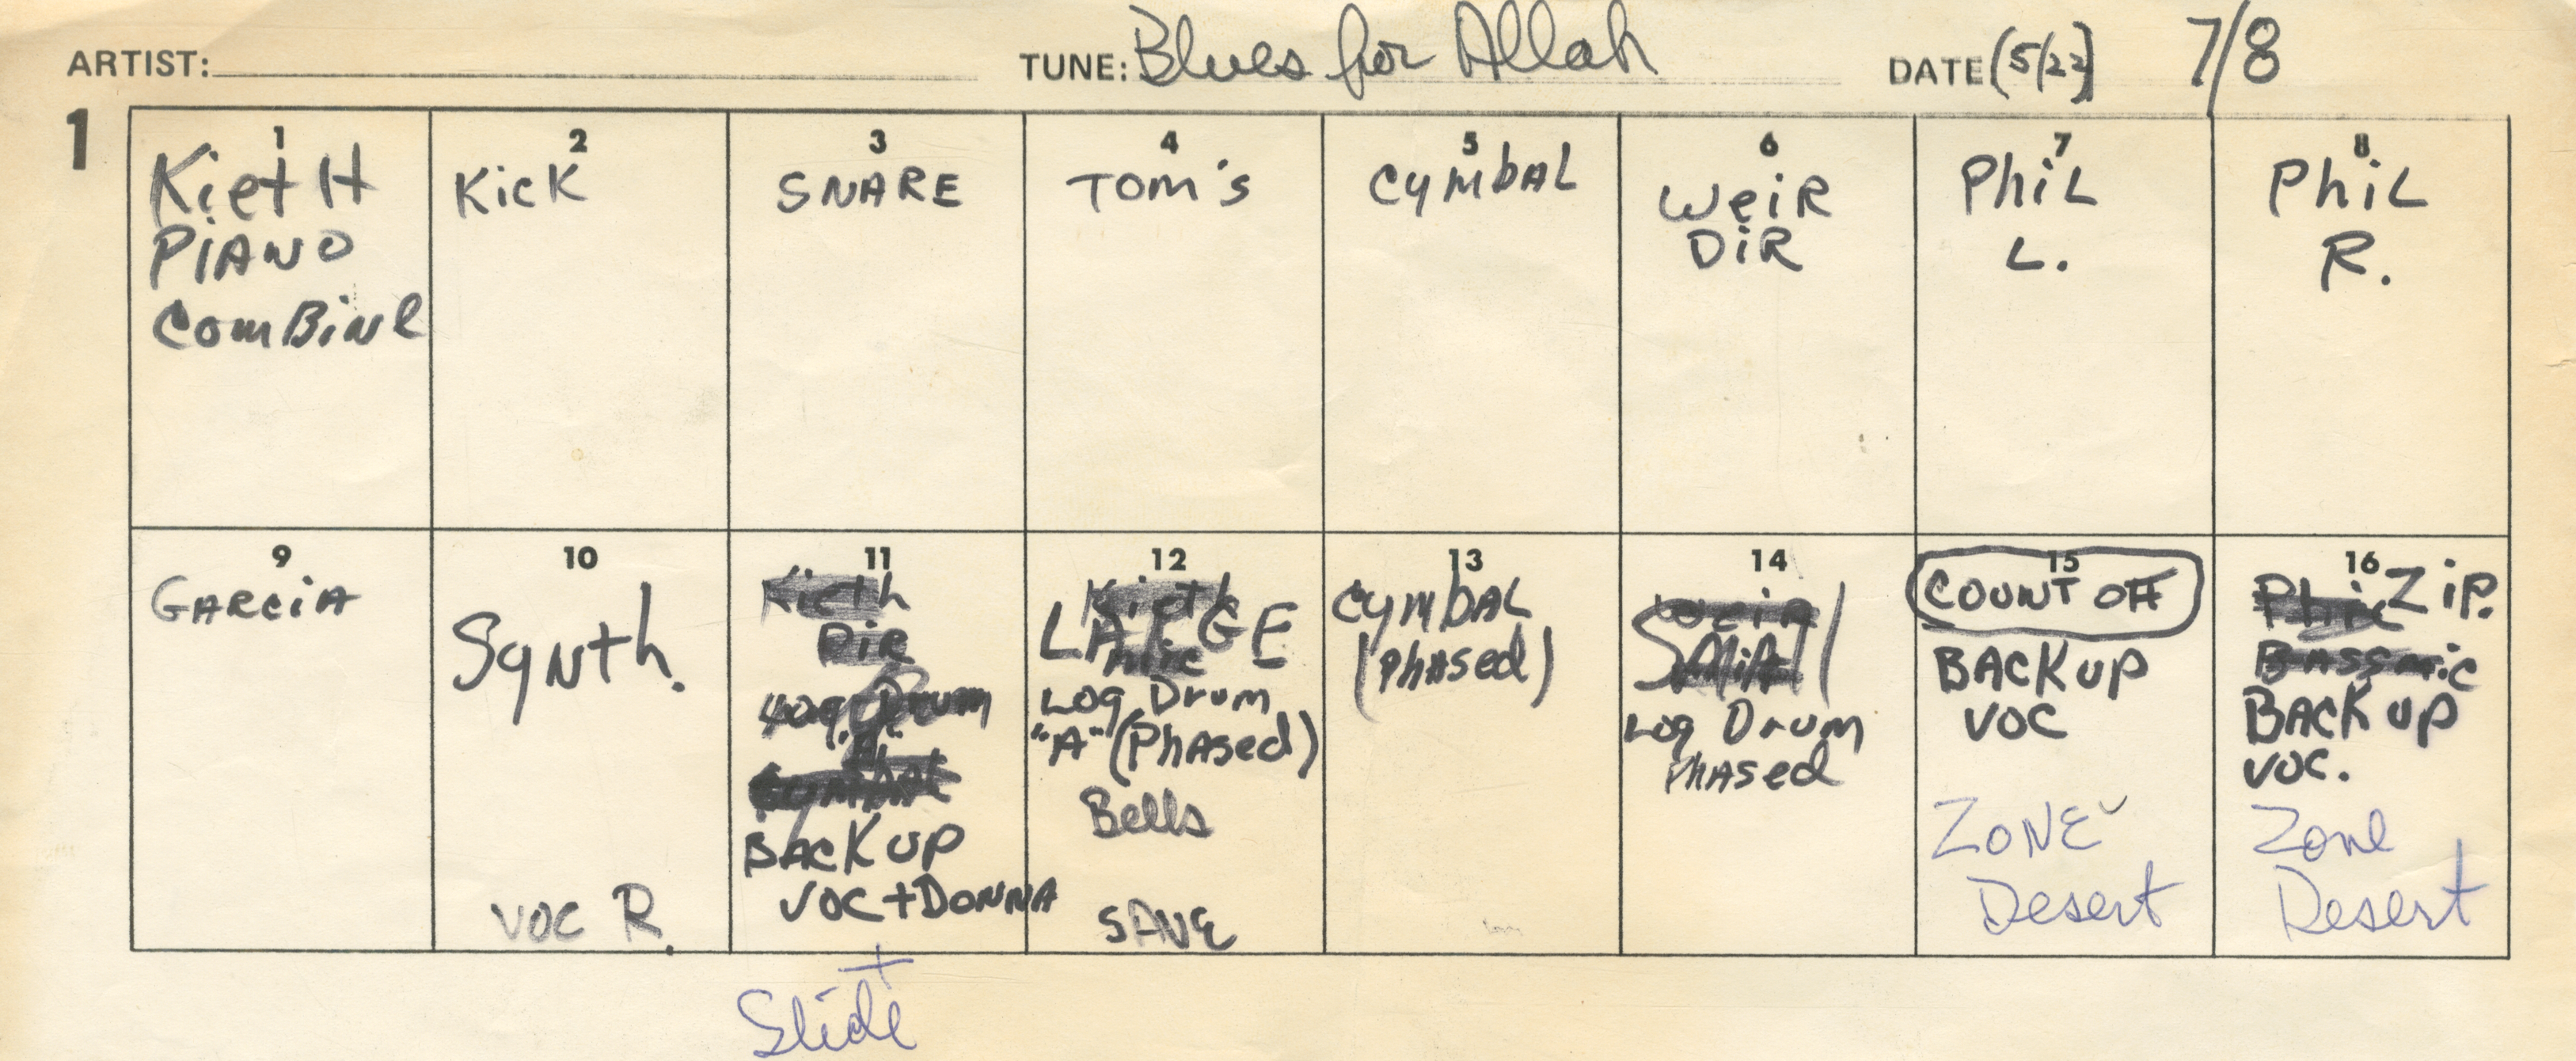 ARTIST: TUNE: Blues for Allah DATE (5/22) 7/8
1
1
KietH
PiANO
ComBiNe
2
KicK
3
SNARE
4
Tom's
5
CymbAL
6
WeiR
DiR
7
PhiL
L.
8
PhiL
R.
9
GARCiA
10
Synth.
VOC R.
11
Kieth
DiR
Log Drum
"A"
CymbAL
BACK UP
VOC + DONNA
+
Slide
12
Kieth
LARGE
Log Drum
"A" (PhAsed)
Bells
SAVE
13
CymbAL
(PhAsed)
14
Weir
Small
Log Drum
PhAsed
15
COUNT OFF
BACK UP
VOC
ZONE
Desert
16
Phil ZiP.
Bass mic
BACK UP
VOC.
Zone
Desert